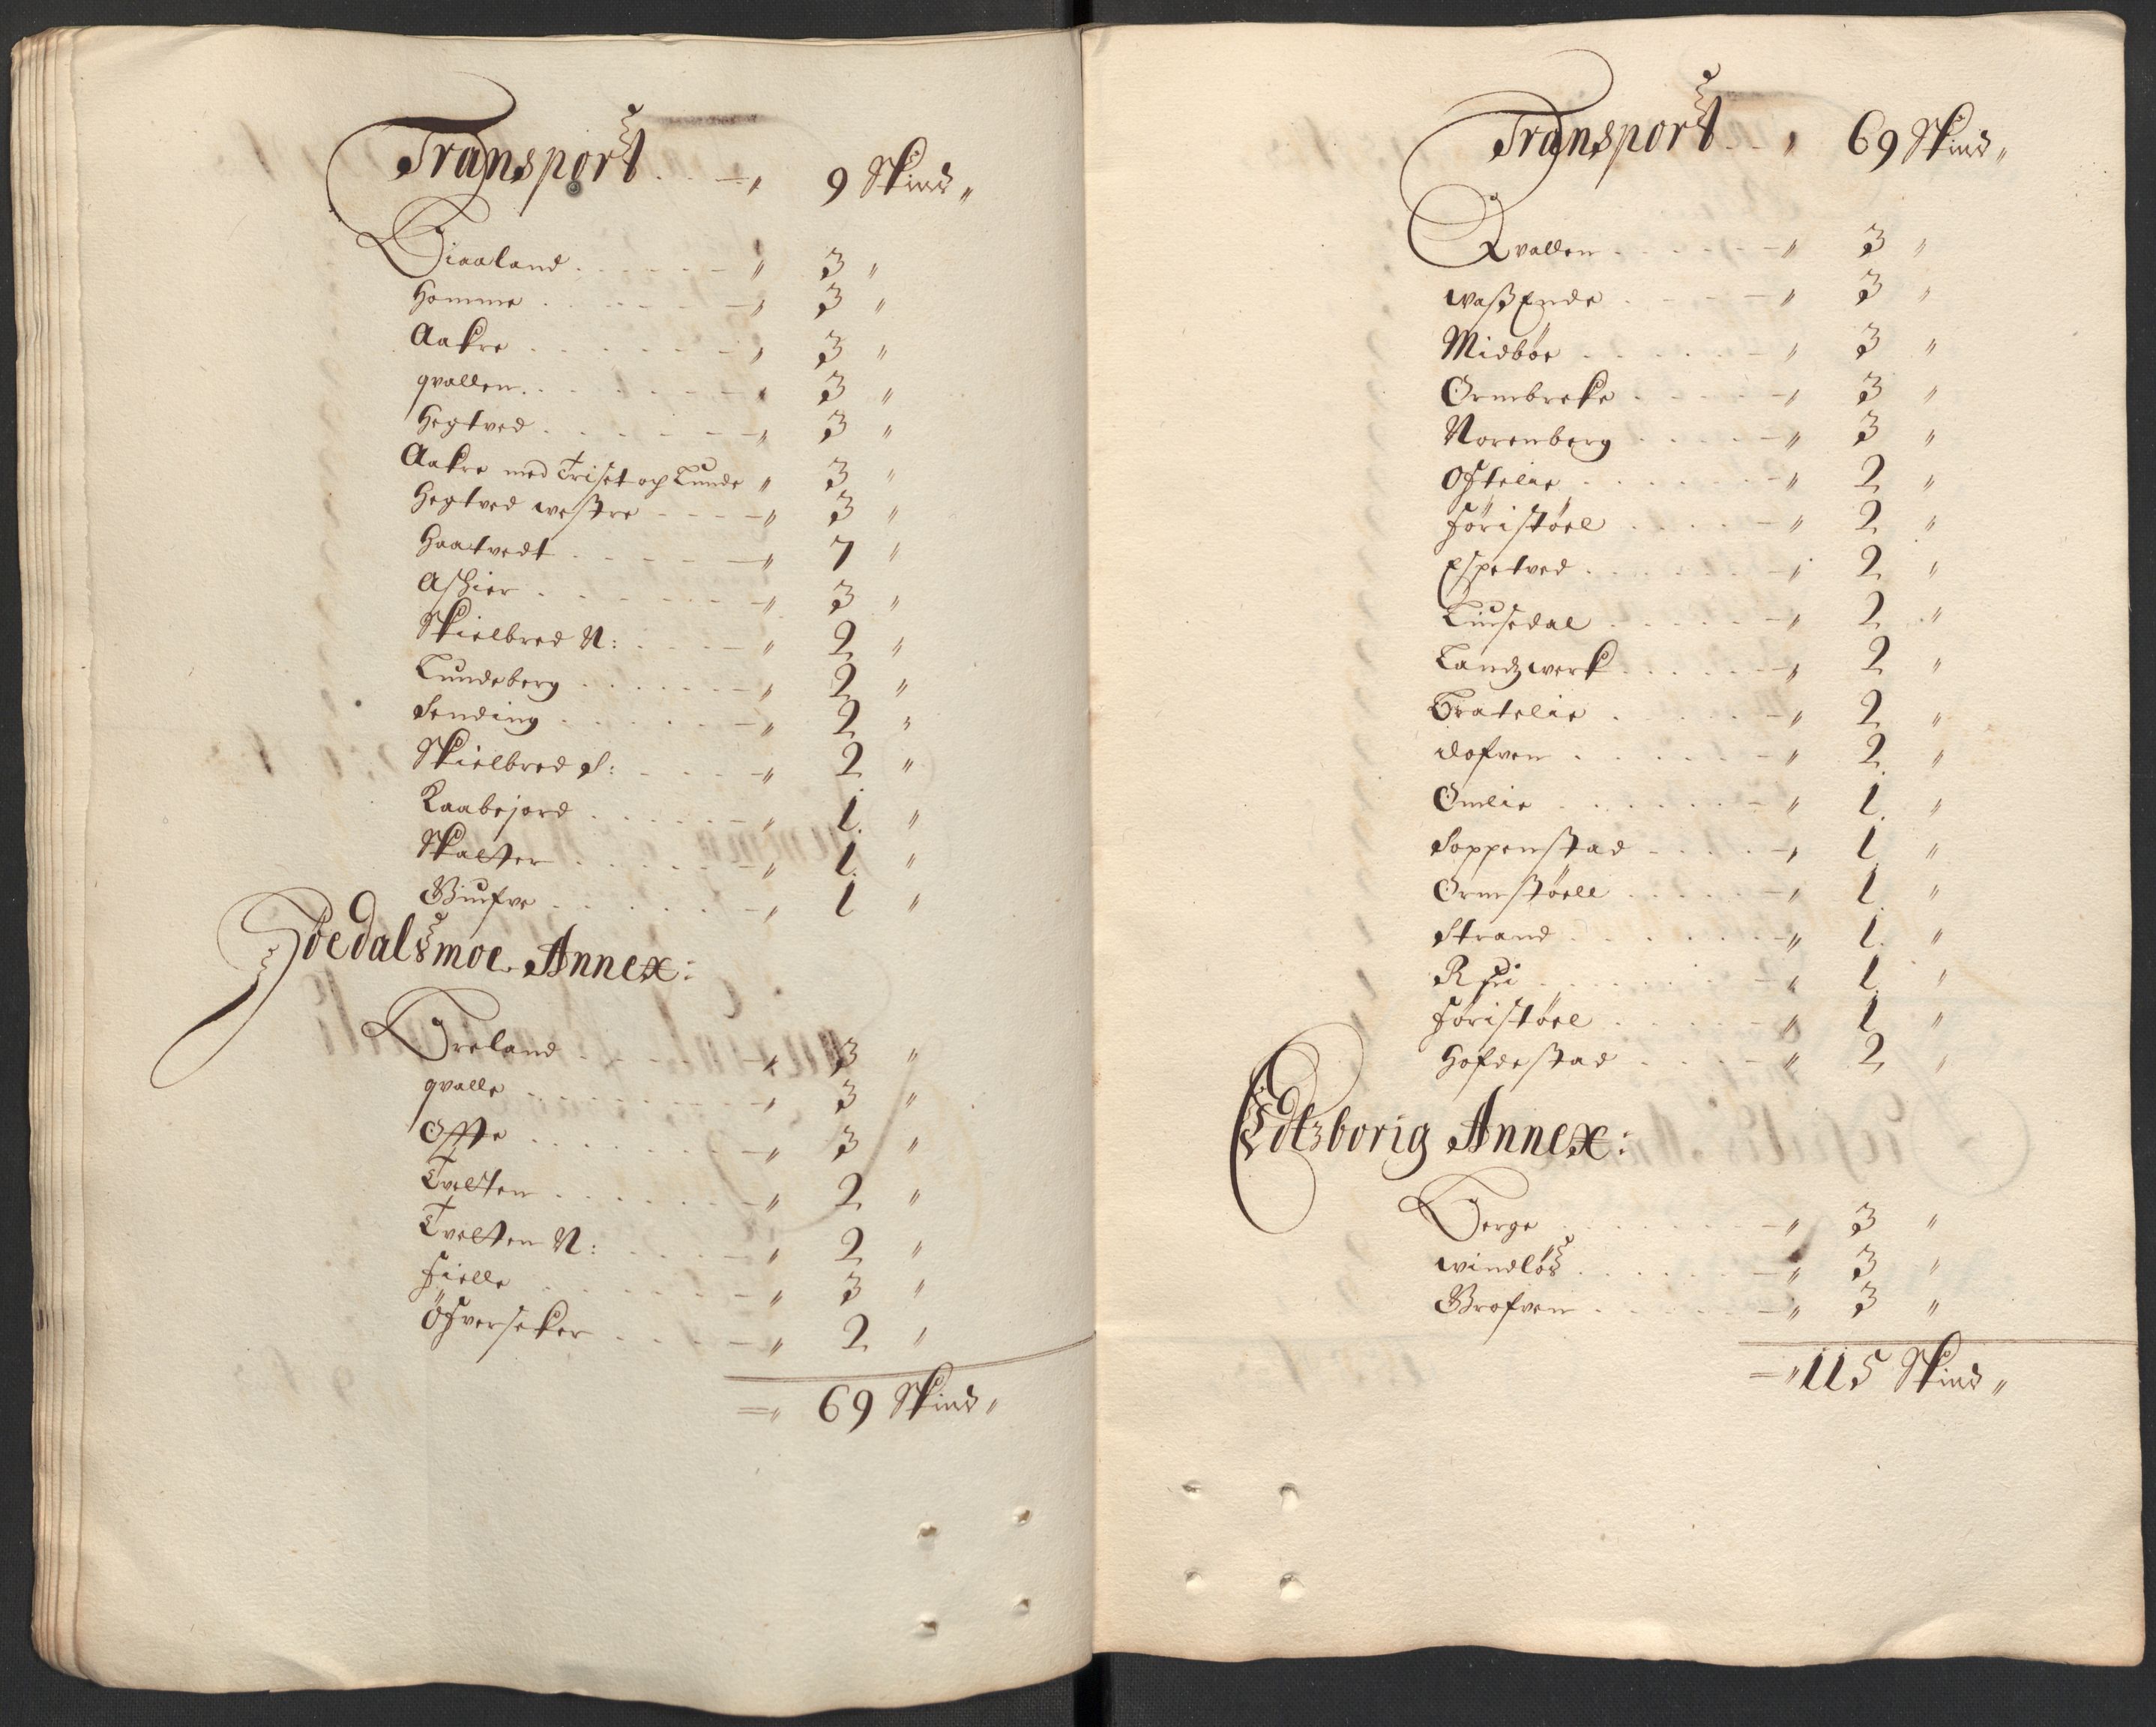 Transport . . – 9 Skind
Tiaaland . . . . . . – 3
Homme . . . . . . – 3
Aakre . . . . . . – 3
qvallen . . . . . . – 3
Hegtved . . . . . . – 3
Aakre med Triset og Lunde 3
Hegtved westre - - - – 3
Haatvedt . . . . . – 7
Aschier . . . . . . – 3
Skielbred N: . . . . – 2
Lundeberg . . . . . . – 2
Sending . . . . . . – 2
Skielbred S: . . . . – 2
Raabejord . . . . . . – 1.
Skalter . . . . . . – 1.
Biufve . . . . . . – 1
Høedalsmoe Annex:
Treland . . . . . . – 3
qvalle . . . . . . – 3
Offte . . . . . . – 3
Tvelten . . . . . . – 2
Tvelten N: . . . . – 2
Fielle . . . . . . – 3
Öfverseker . . . . – 2
69 Skind
Transport . . 69 Skind
Qvallen . . . . . – 3
wasßende . . . . – 3
Midböe . . . . . – 3
Ormbreke . . . . – 3
Norenberg . . . . – 3
Oftelie . . . . . . – 2
Föristöel . . . . – 2
Espetved . . . . . . – 2
Liusedal . . . . . – 2
Landzwerk . . . . . – 2
Bratelie . . . . . – 2
dofven . . . . . . – 2.
Omlie . . . . . . – 1.
Soppenstad - . . . – 1
Ormstöell . . . . – 1.
Strand . . . . . . – 1.
Rui . . . . . . – 1.
Föristöel . . . . . 1
Hofdestad . . . – 2
Edtzborig Annex:
Berge . . . . . . – 3
windlös . . . . . – 3
Grofven . . . . . – 3
115 Skind